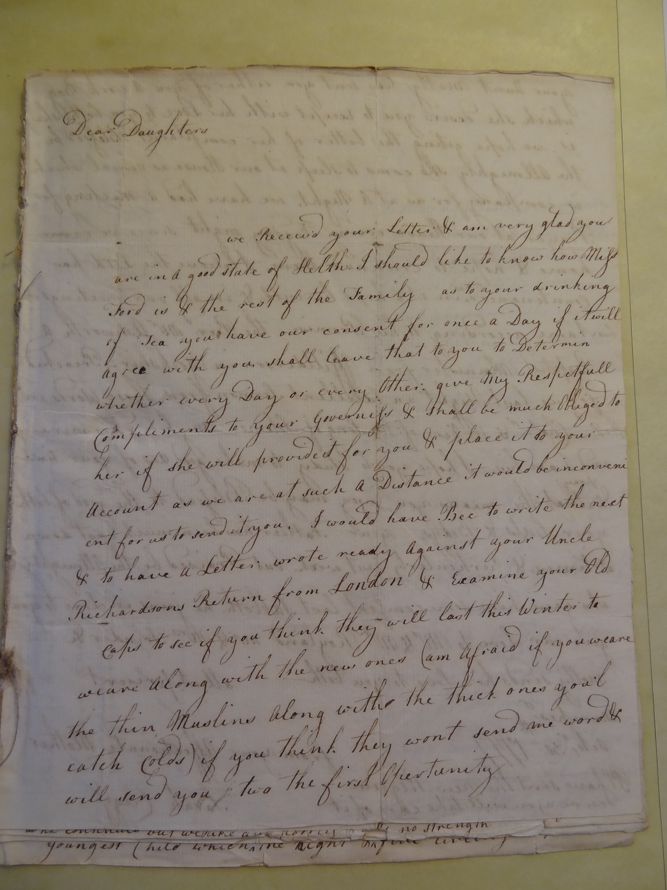 Dear Daughters
we Receiv'd your Letter & am very glad you
are in a good state of Helth I should like to know how Miss
Ford is & the rest of the Family as to your drinking
of Tea you have our consent for once a Day if it will
agree with you shall leave that to you to Determin
whether every Day or every Other: give My Respectfull
Compliments to your Governiss & shall be much Obliged to
her if she will provided for you & place it to your
Account as we are at such A Distance it would be inconveni
ent for us to send it you. I would have Bec to write the next
& to have a Letter wrote ready Against your Uncle
Richardsons Return from London & Examine your Old
Caps to see if you think they will last this Winter to
weare Along with the new ones (am Afraid if you weare
the thin Muslins Along with the thick ones you'l
catch Colds) if you think they wont send me word &
will send you two the first Opertunity
no strength
youngest Child which